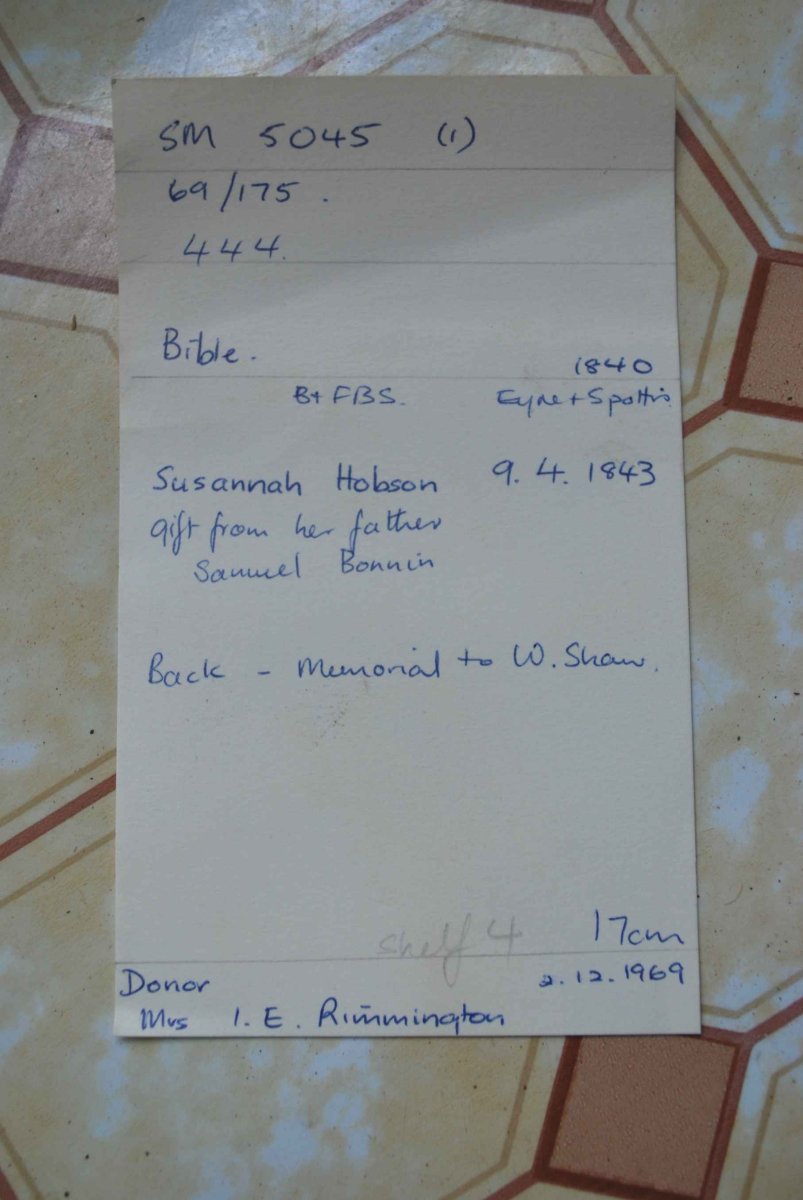 SM 5045 (1)
69/175 .
444.
Bible. 1840
B+ FBS. Eyre + Spottis
Susannah Hobson 9. 4. 1843
gift from her father
Samuel Bonnin
Back - Memorial to W. Shaw.
shelf 4 17cm
Donor 2.12.1969
Mrs I. E. Rimmington